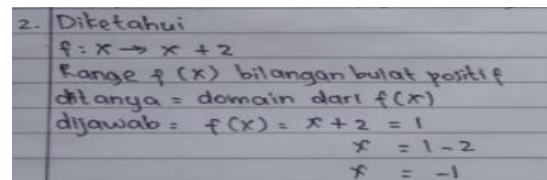 2. Diketahui
f : x → x + 2
Range f (x) bilangan bulat positif
ditanya = domain dari f(x)
dijawab = f(x) = x + 2 = 1
x = 1 - 2
x = -1